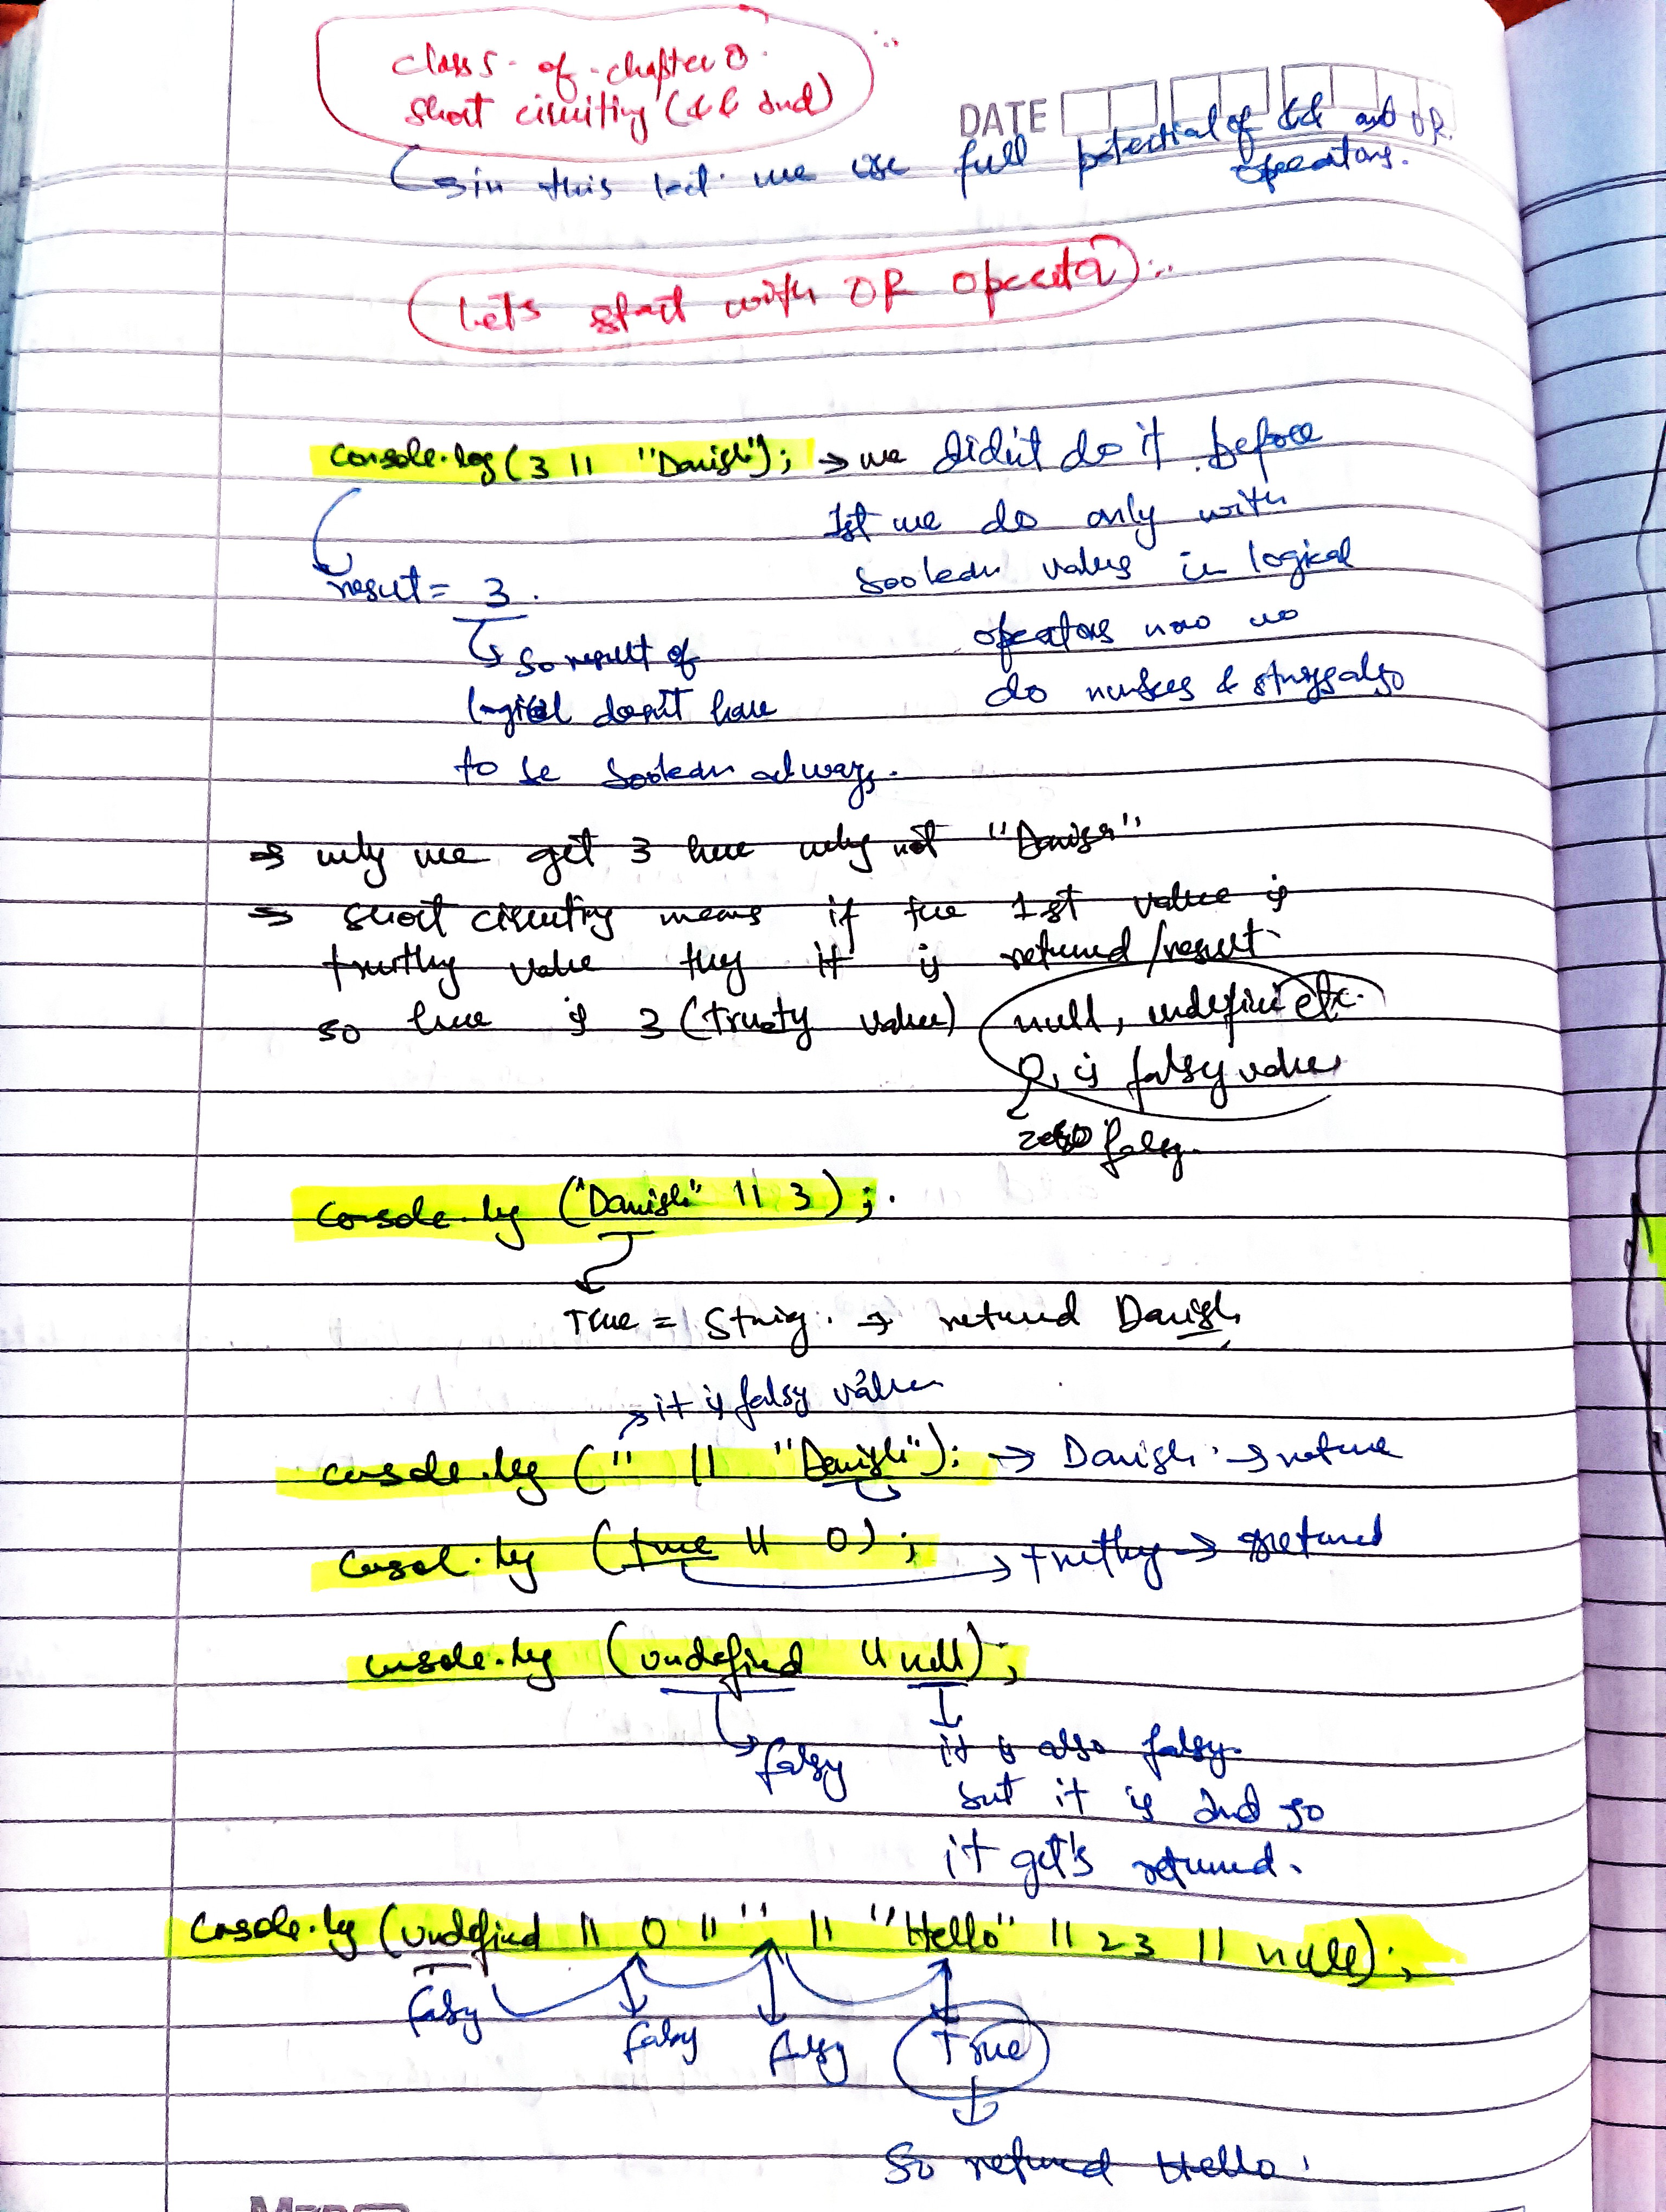 class 5 of chapter 8.
short circuiting (&& and)
DATE
↳ in this lect. we use full potential of && and OR
operators.
Lets start with OR operator :-
console.log(3 || "Danish"); → we didn't do it before
1st we do only with
result = 3.
boolean values in logical
↳ so result of
operators now we
logical doesn't have
do numbers & strings also
to be boolean always.
⇒ why we get 3 here why not "Danish"
⇒ short circuiting means if the 1st value is
truthy value they it is returned/result.
so here is 3 (truty value)
null, undefini etc.
0, is falsy value
zero falsy.
console.log ("Danish" || 3);
True = String. → returned Danish
→ it is falsy value
console.log ('' || "Danish"); → Danish → return
consol.log (true || 0); → truthy → returned
console.log (undefined || null);
↳ falsy
it is also falsy.
but it is 2nd so
it get's returned.
Console.log (undefined || 0 || '' || "Hello" || 23 || null);
falsy falsy falsy True
So returned Hello.